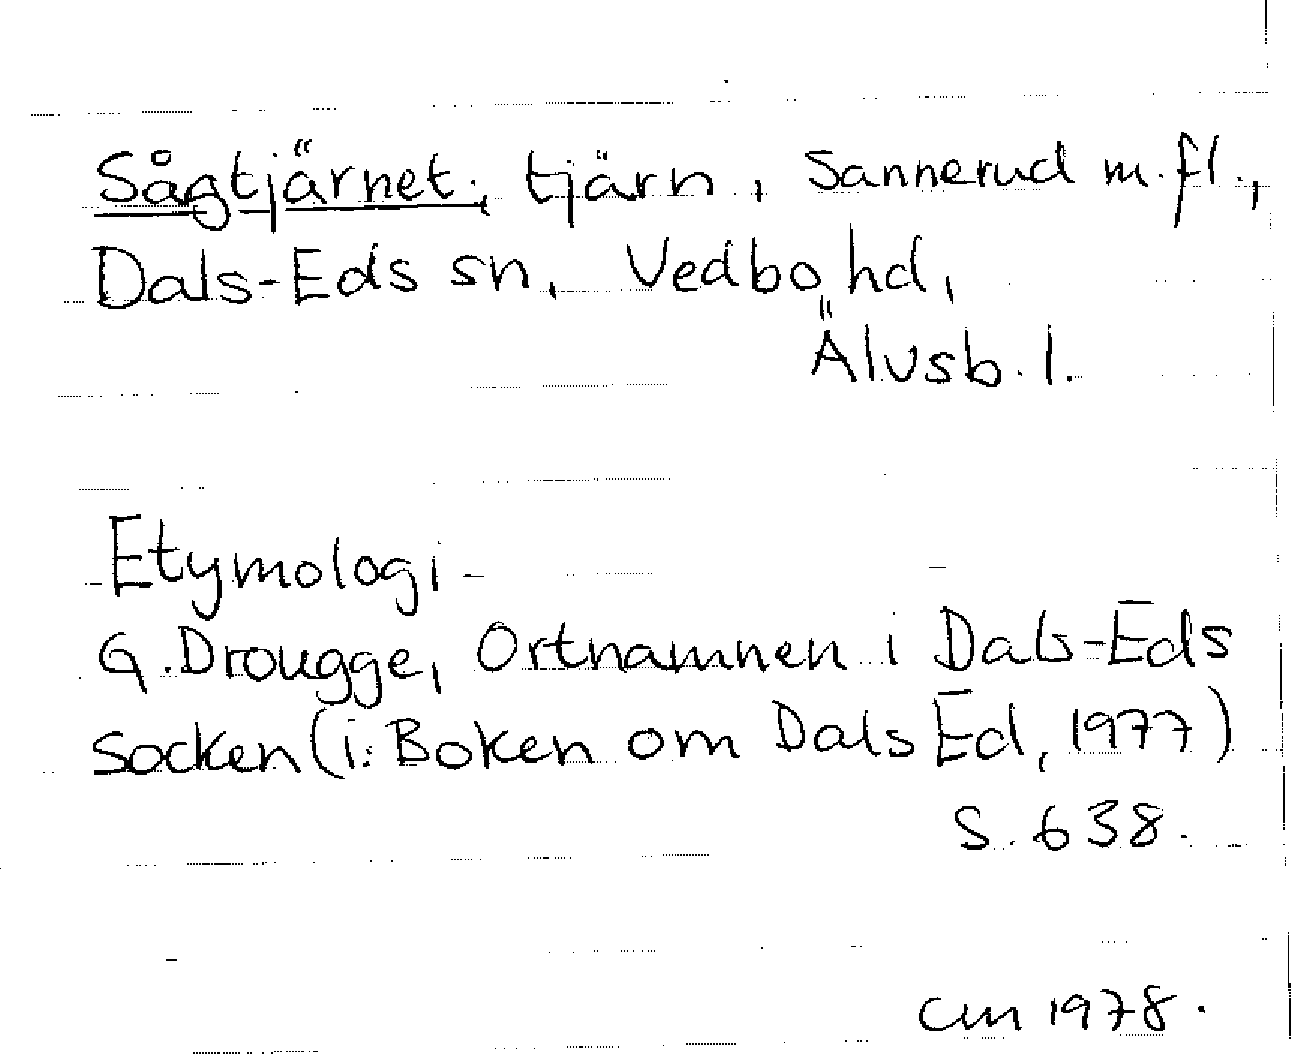 Sågtjärnet, tjärn, Sannerud m.fl.,
Dals-Eds sn, Vedbo hd,
Älvsb. l.
Etymologi
G. Drougge, Ortnamnen i Dals-Eds
socken (i: Boken om Dals Ed, 1977)
s. 638.
CM 1978.